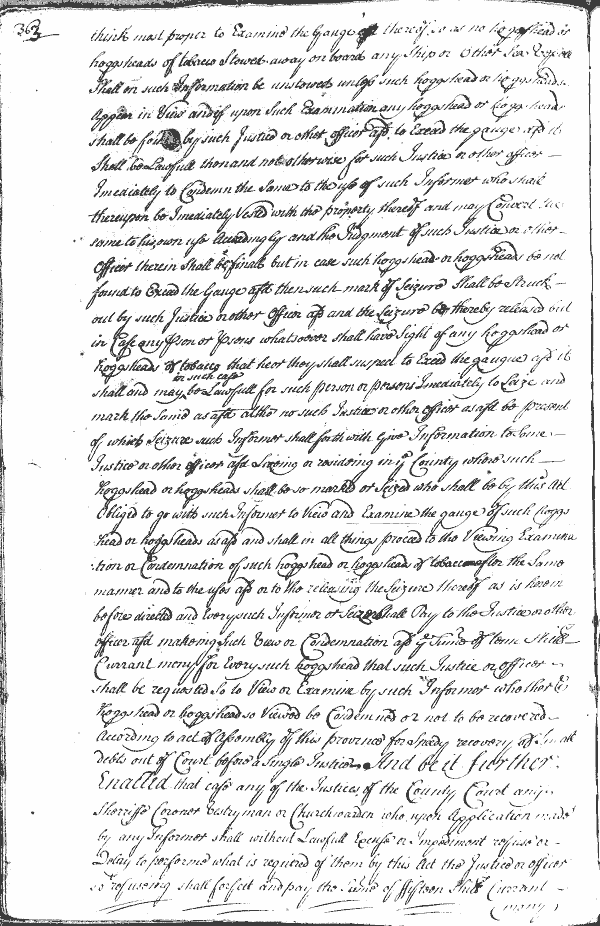 363
think most proper to Examine the Gauge thereof so as no hoggshead or
hoggsheads of tobacco Stowed away on board any Ship or Other Sea Vessell
Shall on such Information be unstowed unless such hoggshead or hoggsheads
Appear in View and if upon Such Examination any hoggshead or hoggsheads
shall be found by such Justice or other officer afd. to Exceed the gauge afd it
Shall be Lawfull then and not otherwise for such Justice or other officer —
Imediately to Condemn the Same to the use of such Informer who shall
thereupon be Imediately Vested with the property thereof and may Convert the
same to his own use Accordingly and the Judgment of such Justice or other
Officer therein Shall be finall but in case such hoggshead or hoggsheads be not
found to Exceed the Gauge afd then such mark of Seizure Shall be Struck
out by such Justice or other Officer afd and the Seizure be thereby released and
in Case any pson or psons whatsoever shall have Sight of any hoggshead or
hoggsheads of tobacco that he or they shall suspect to Exceed the gauge afd it
in such case
shall and may be Lawfull for such person or persons Imediately to Seize and
mark the Same as afd altho no such Justice or other officer as afd be present
of which Seizure such Informer shall forthwith Give Information to Some —
Justice or other officer afd Liveing or resideing in ye County where such —
hoggshead or hoggsheads shall be so marked or Seized who shall be by this Act
Obliged to go with such Informer to View and Examine the gauge of such hoggs
head or hoggsheads as afd and shall in all things proceed to the Viewing Examina
tion or Condemnation of such hoggshead or hoggsheads of tobacco after the Same
manner and to the uses afd or to the releasing the Seizure thereof as is herein
before directed and every such Informer or Seizer shall Pay to the Justice or other
officer afd makeing Such View or Condemnation afd ye Sume of tenn Shill
Currant mony for Every such hoggshead that such Justice or officer —
shall be requested So to View or Examine by such Informer whether ye
hoggshead or hoggsheads so Viewed be Condemned or not to be recovered
According to act of Assembly of this province for Speedy recovery of Small
debts out of Court before a Single Justice. And be it further
Enacted that case any of the Justices of the County Court any
Sherriffe Coroner Vestryman or Churchwarden who upon Application made
by any Informer shall without Lawfull Excuse or Impediment refuse or
Delay to performe what is required of them by this Act the Justice or officer
so refuseing shall forfeit and pay the Sume of fifteen Shill Currant
mony